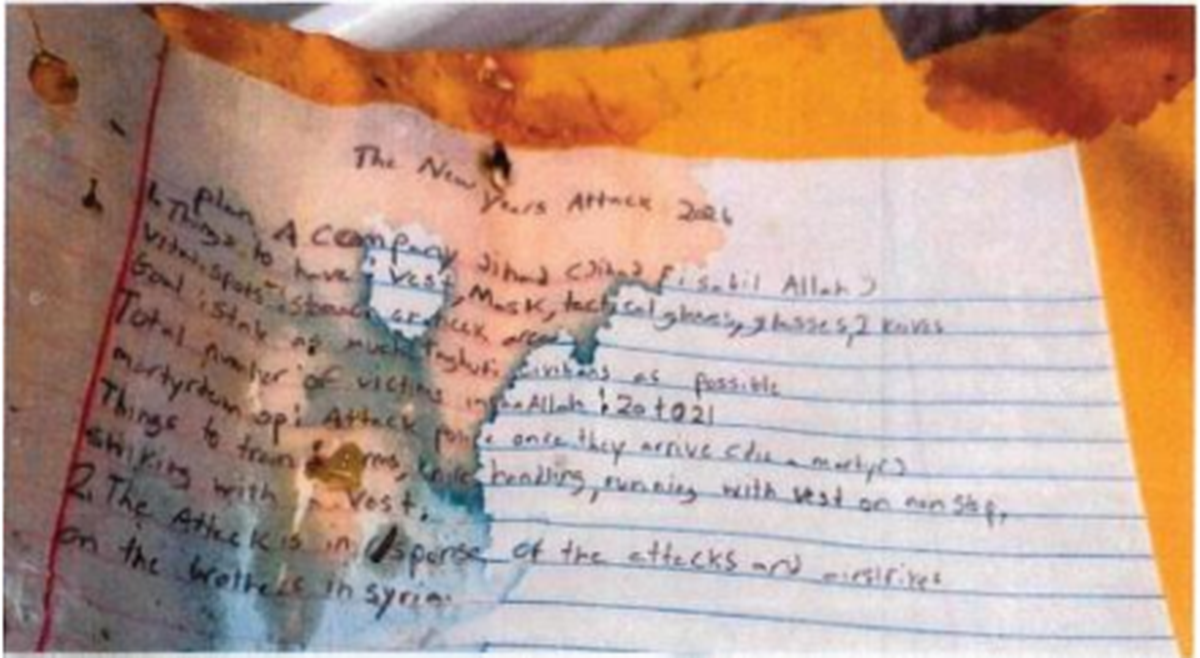 The New Years Attack 2026
1. plan A company Jihad (Jihad fi sabil Allah)
Things to have: vest, Mask, tactical gloves, glasses, 2 knives
Vital spots: stomach or neck area
Goal: Stab as much civilians as possible
Total number of victims inshaAllah: 20 to 21
martyrdom op: Attack police once they arrive (die a martyr)
Things to train: arms, knife handling, running with vest on non stop,
striking with vest.
2. The Attack is in response of the attacks and airstrikes
on the brothers in syria.